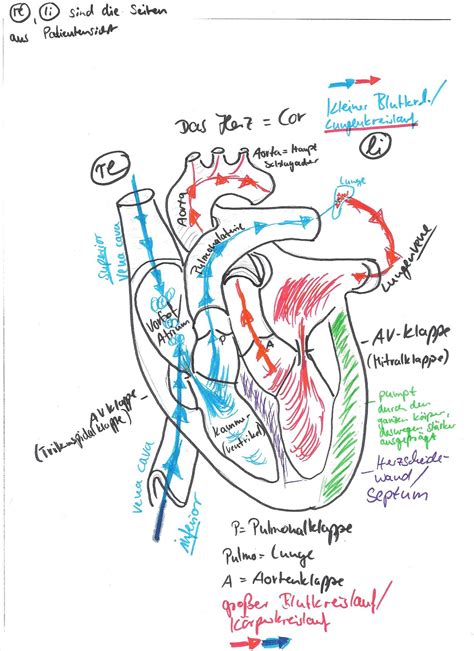 re, li sind die Seiten
aus Patientensicht
kleiner Blutkrl./
Lungenkreislauf
Das Herz = Cor
re
li
Aorta = Haupt
Schlagader
Lunge
Aorta
Pulmonalarterie
Superior
Vena cava
Lungenvene
Vorhof
Atrium
P
A
AV-Klappe
(Mitralklappe)
AV Klappe
(Trikuspidalklappe)
Kammer
(Ventrikel)
pumpt
durch den
ganzen Körper,
deswegen stärker
ausgeprägt
Herzscheide-
wand/
Septum
Vena cava
inferior
P = Pulmonalklappe
Pulmo = Lunge
A = Aortenklappe
großer Blutkreislauf/
Körperkreislauf